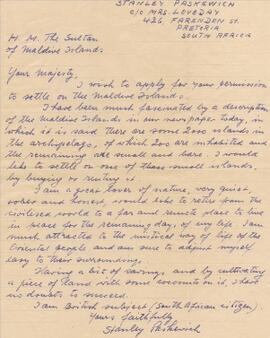 STANLEY PASKEWICH
C/O MRS. LOVEDAY
426, FARENDEN ST.
PRETORIA
SOUTH AFRICA
H. M. The Sultan
of Maldive Islands.
Your Majesty.
I wish to apply for your permission
to settle on the Maldive Islands.
I have been much fascinated by a description
of the Maldive Islands in our newspaper today, in
which it is said there are some 2000 islands in
the archipelago, of which 200 are inhabited and
the remaining are small and bare. I would
like to settle on one of those small islands,
by buying or renting it.
I am a great lover of nature, very quiet,
sober and honest, would like to retire from the
civilised world to a far and remote place to live
in peace for the remaining days of my life. I am
much attracted to the mistical way of life of the
Oriental people and am sure to adjust myself
easy to their surroundings.
Having a bit of savings, and by cultivating
a piece of land with some coconuts on it, I have
no doubts to succeed.
I am British subject (South African citizen).
Yours faithfully
Stanley Paskewich